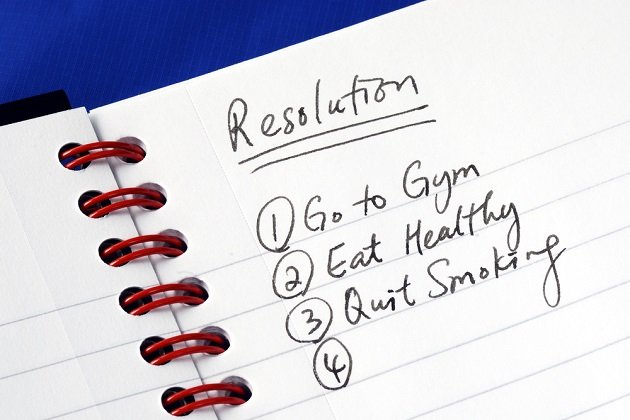 Resolution
① Go to Gym
② Eat Healthy
③ Quit Smoking
④